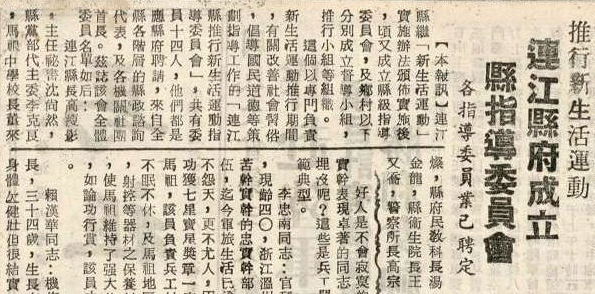 推行新生活運動
連江縣府成立
縣指導委員會
各指導委員業已聘定
【本報訊】連江
縣繼「新生活運動」
實施辦法頒佈實施後
，頃又成立縣級指導
委員會，及鄉村以下
分別成立督導小組，
推行小組等組織。
這個以專門負責
新生活運動推行期間
，有關改善社會習俗
，倡導國民道德等策
劃指導工作的「連江
縣推行新生活運動指
導委員會」，共有委
員十四人，他們都是
應縣府聘請，來自全
縣各階層的縣政諮詢
代表，及各機關社團
首長。茲誌該會全體
委員名單如后：
連江縣長高綾影
，主任秘書沈尚然，
縣黨部代主委李克良
，馬祖中學校長董來
燦，縣府民教科長湯
金龍，縣衛生院長王
又喬，警察所長高宗
好人是不會寂寞的
實幹表現卓著的同志
埋沒呢？這些是兵工
範典型。
李忠南同志：官拜
，現齡四〇，浙江溫州
苦幹實幹的忠實幹部
伍，迄今軍旅生活已
不怨天，更不尤人，
功獲七星寶星獎章一
馬祖，該員負責兵工
不眠不休，及馬祖地區
，射控等器材之保養
，使馬祖維持了強大
，如論功行賞，該員
賴漢華同志：機
長，三十四歲，生長
身體欠健壯但很結實